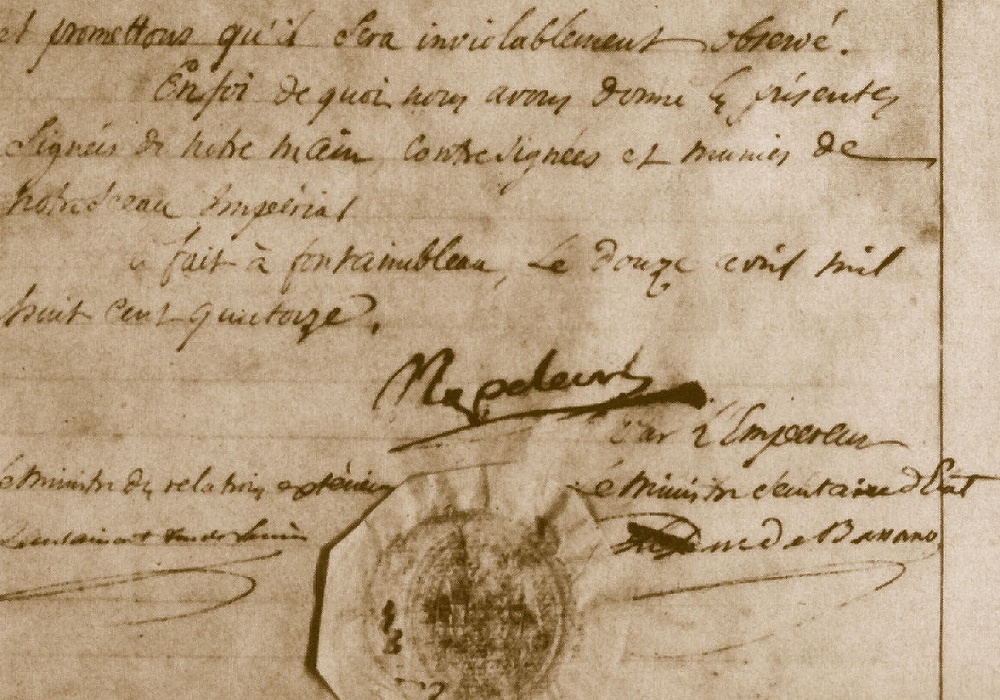 et promettons qu'il sera inviolablement observé.
En foi de quoi nous avons donné les présentes
signées de notre main contresignées et munies de
notre sceau impérial
fait à fontainebleau, Le douze avril mil
huit cent quatorze.
Napoleon
Par l'Empereur
le ministre des relations extérieures
Le ministre secretaire d'Etat
duc de Bassano